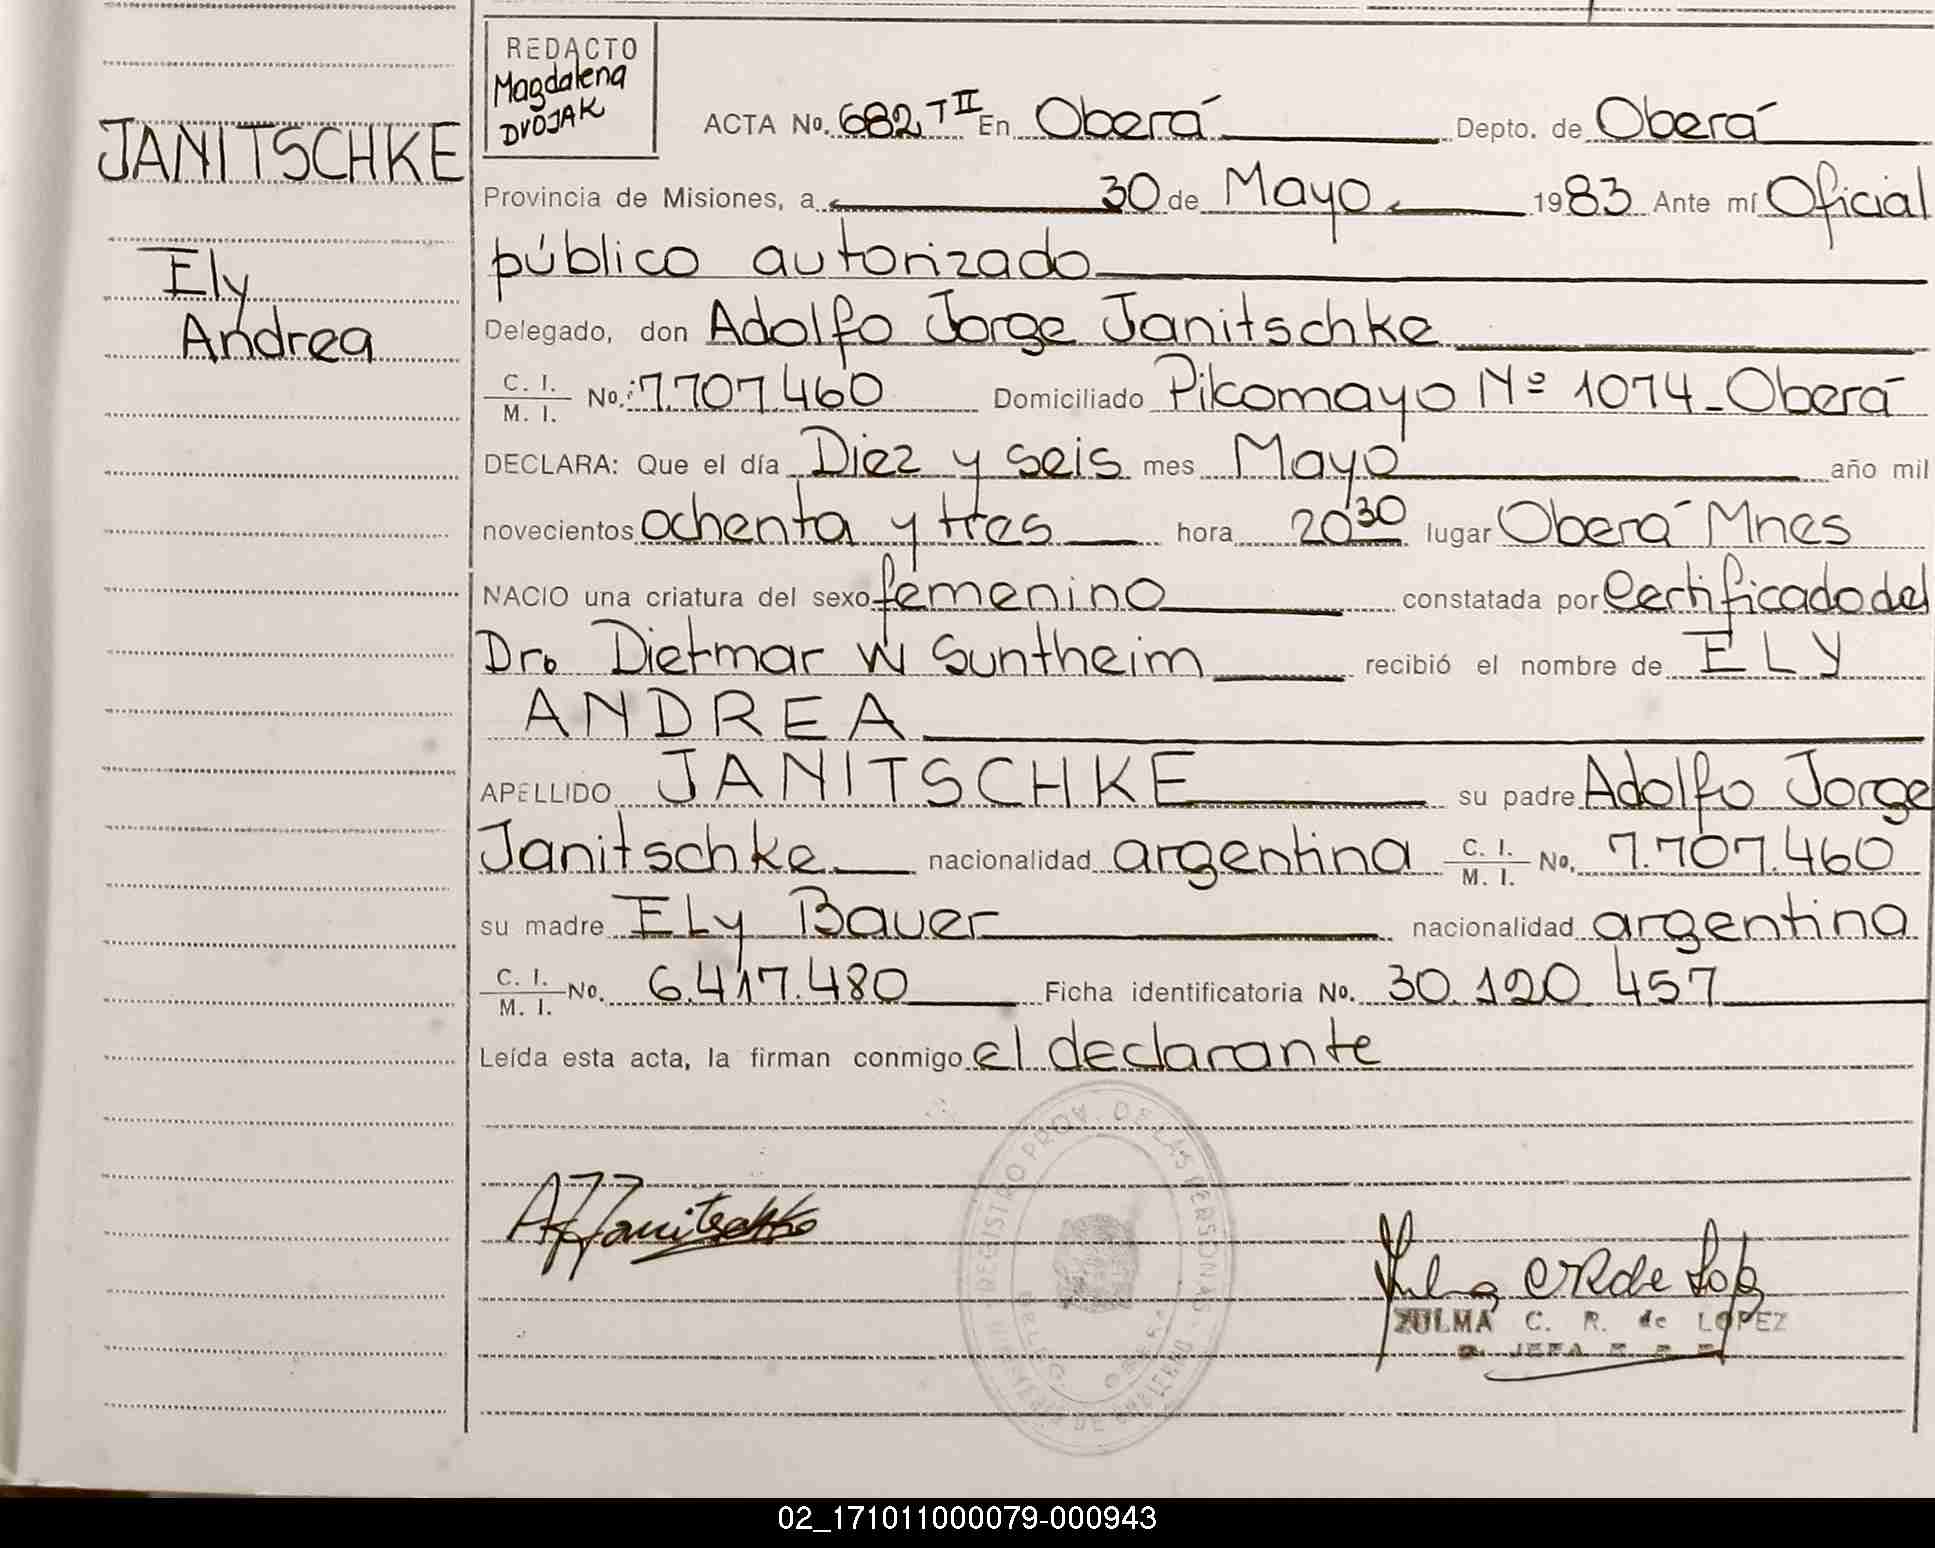 REDACTO
Magdalena
DVOJAK
JANITSCHKE
Ely
Andrea
ACTA No. 682 T II En Oberá Depto. de Oberá
Provincia de Misiones, a 30 de Mayo 1983 Ante mí Oficial
público autorizado
Delegado, don Adolfo Jorge Janitschke
C. I. / M. I. No.: 7.707.460 Domiciliado Pilcomayo Nº 1074 - Oberá
DECLARA: Que el día Diez y seis mes Mayo año mil
novecientos ochenta y tres hora 20 30 lugar Oberá Mnes
NACIO una criatura del sexo femenino constatada por Certificado del
Dr. Dietmar W Suntheim recibió el nombre de ELY
ANDREA
APELLIDO JANITSCHKE su padre Adolfo Jorge
Janitschke nacionalidad argentina C. I. / M. I. No. 7.707.460
su madre Ely Bauer nacionalidad argentina
C. I. / M. I. No. 6.417.480 Ficha identificatoria No. 30.120.457
Leída esta acta, la firman conmigo el declarante
REGISTRO PROV. DE LAS PERSONAS
AJJanitschke
Zulma CR de Lopez
ZULMA C. R. de LOPEZ
JEFA
02_171011000079-000943